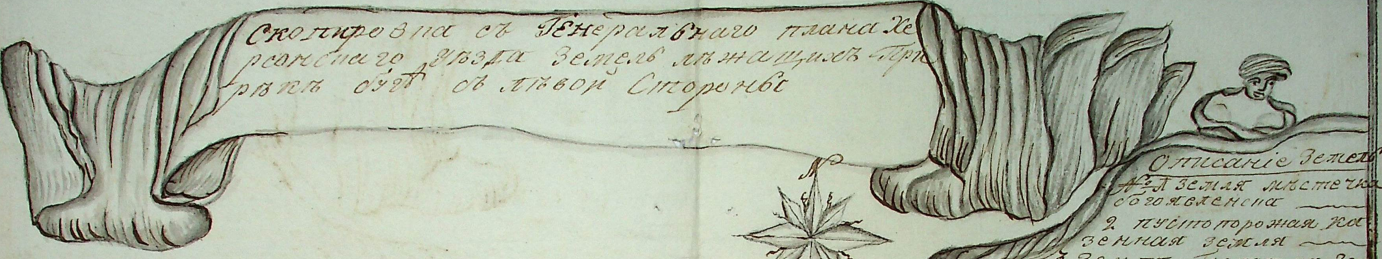 Скопировна съ Генеральнаго плана Хе
рсонскаго уѣзда земель лѣжащихъ При
рѣкѣ бугѣ съ лѣвой Стороны
N
Описаніе Земель
№ 1 земля мѣстечка
богоявленска
2 пустопорожая ка
зенная земля